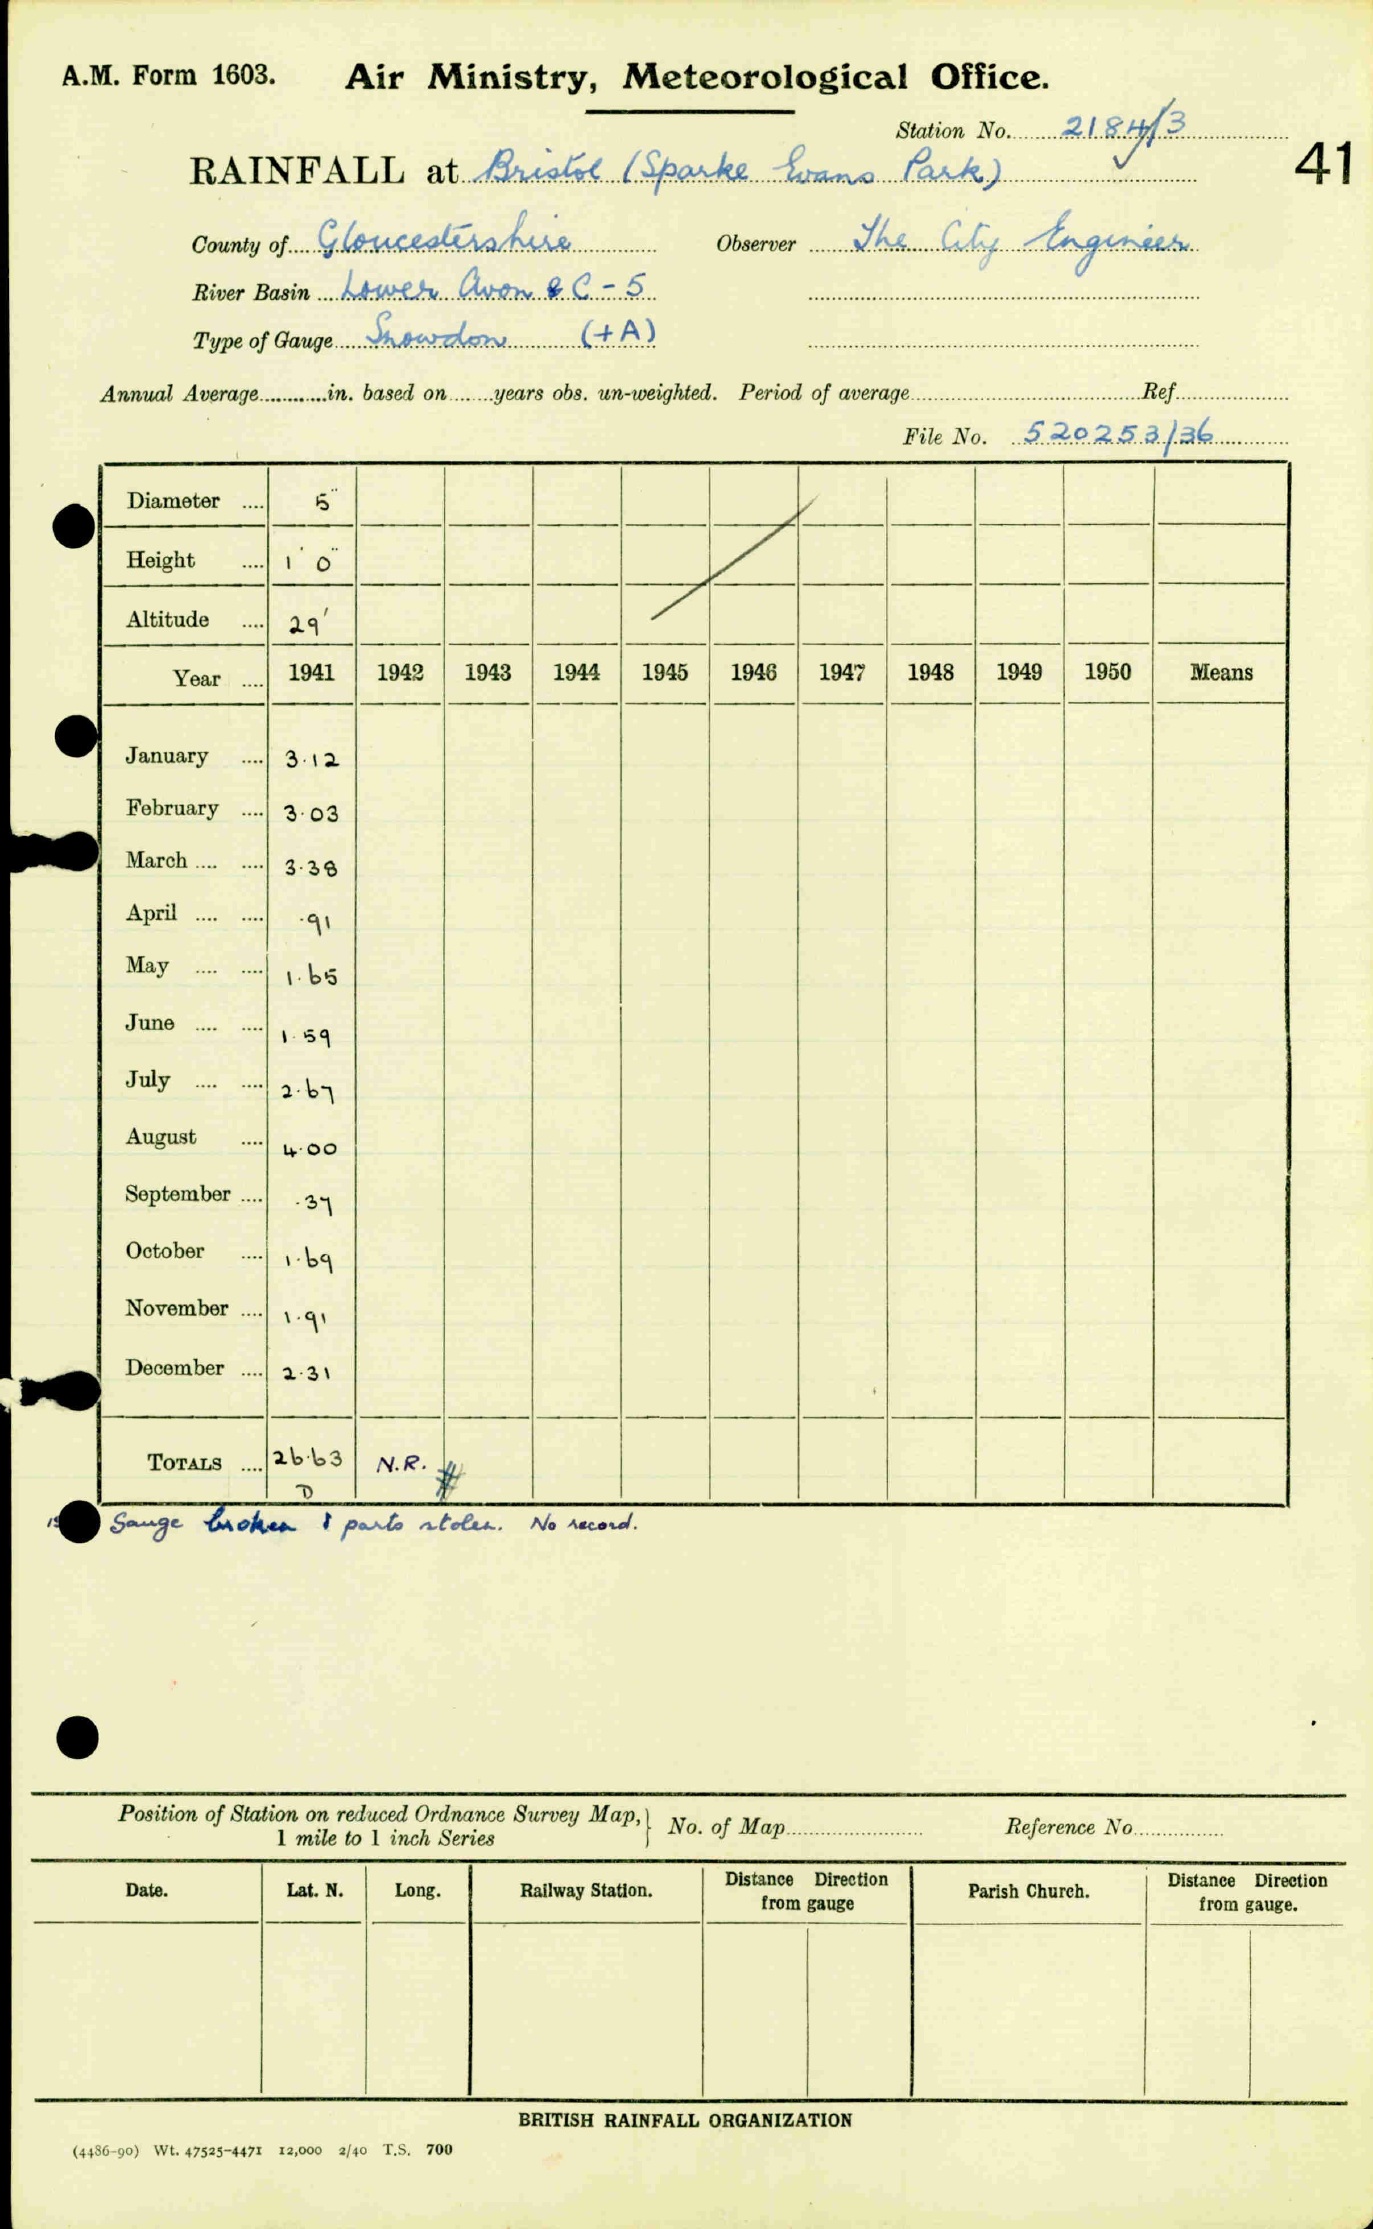 A.M. Form 1603. Air Ministry, Meteorological Office.
Station No. 2184/3
41
RAINFALL at Bristol (Sparke Evans Park)
County of Gloucestershire Observer The City Engineer
River Basin Lower Avon & C - 5
Type of Gauge Snowdon (+A)
Annual Average in. based on years obs. un-weighted. Period of average Ref.
File No. 520253/36
Diameter 5"
Height 1' 0"
Altitude 29'
Year 1941 1942 1943 1944 1945 1946 1947 1948 1949 1950 Means
January 3.12
February 3.03
March 3.38
April .91
May 1.65
June 1.59
July 2.67
August 4.00
September .37
October 1.69
November 1.91
December 2.31
TOTALS 26.63 N.R. #
D
Gauge broken & parts stolen. No record.
Position of Station on reduced Ordnance Survey Map, } No. of Map Reference No.
1 mile to 1 inch Series
Date. Lat. N. Long. Railway Station. Distance Direction from gauge Parish Church. Distance Direction from gauge.
BRITISH RAINFALL ORGANIZATION
(4486-90) Wt. 47525-4471 12,000 2/40 T.S. 700